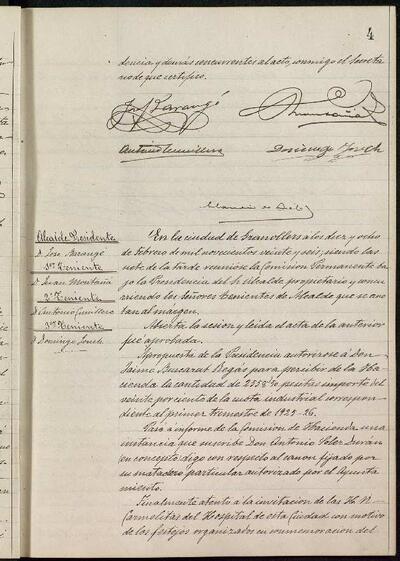 4
dencia y demás concurrentes al acto, conmigo el Secreta
rio de que certifico.
José Barangé
Antonio Cumillera
Domingo Jonch
Alcalde Presidente
D. José Barangé
1er Teniente
D. Juan Montañá
2º Teniente
D. Antonio Cumillera
3er Teniente
D. Domingo Jonch
En la ciudad de Granollers a los diez y ocho
de Febrero de mil novecientos veinte y seis, siendo las
siete de la tarde reuniose la Comisión Permanente ba-
jo la Presidencia del Sr. Alcalde propietario y concu-
rriendo los Señores Tenientes de Alcalde que se ano-
tan al margen.
Abierta la sesion y leida el acta de la anterior
fué aprobada.
A propuesta de la Presidencia autorizose a Don
Jaime Buscarut Bogas para percibir de la Ha-
cienda la cantidad de pesetas importe del
veinte por ciento de la cuota industrial correspon-
diente al primer trimestre de 1925-26.
Pasó a informe de la Comision de Hacienda una
instancia que suscribe Don Antonio Soler Durán
en concepto digo con respecto al canon fijado por
su matadero particular autorizado por el Ayunta
miento.
Finalmente atento a la invitación de las H. H.
Carmelitas del Hospital de esta Ciudad con motivo
de los festejos organizados en conmemoracion del